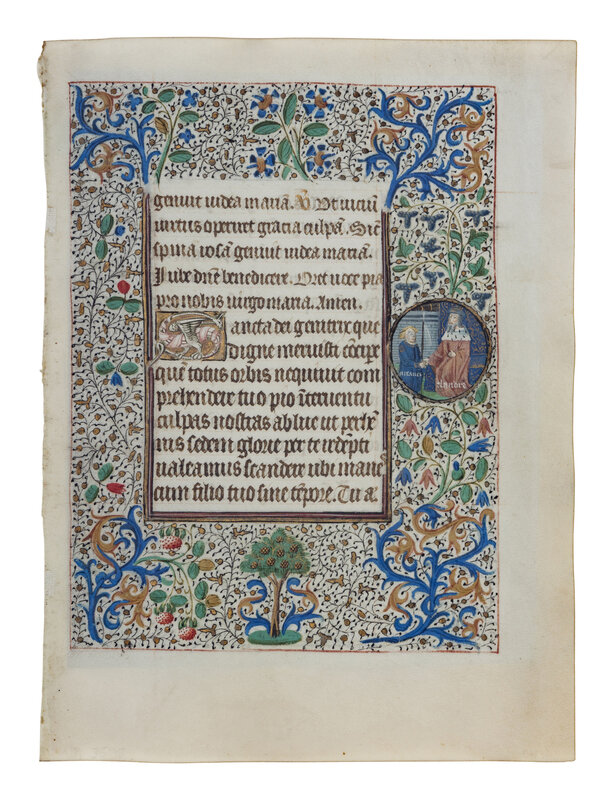 genuit iudea mariā. Vt uiciū
uirtus operiret gracia culpā. Sic
spina rosā genuit iudea mariā.
Iube dñe benedicere. Oret uoce pia
pro nobis uirgo maria. Amen.
Sancta dei genitrix que
digne meruisti cōcipe
quē totus orbis nequiuit com
prehendere tuo pio īteruentu
culpas nostras ablue ut perhē
nis sedem glorie per te redēpti
ualeamus scandere ubi mane
cum filio tuo sine tēpore. Tu a